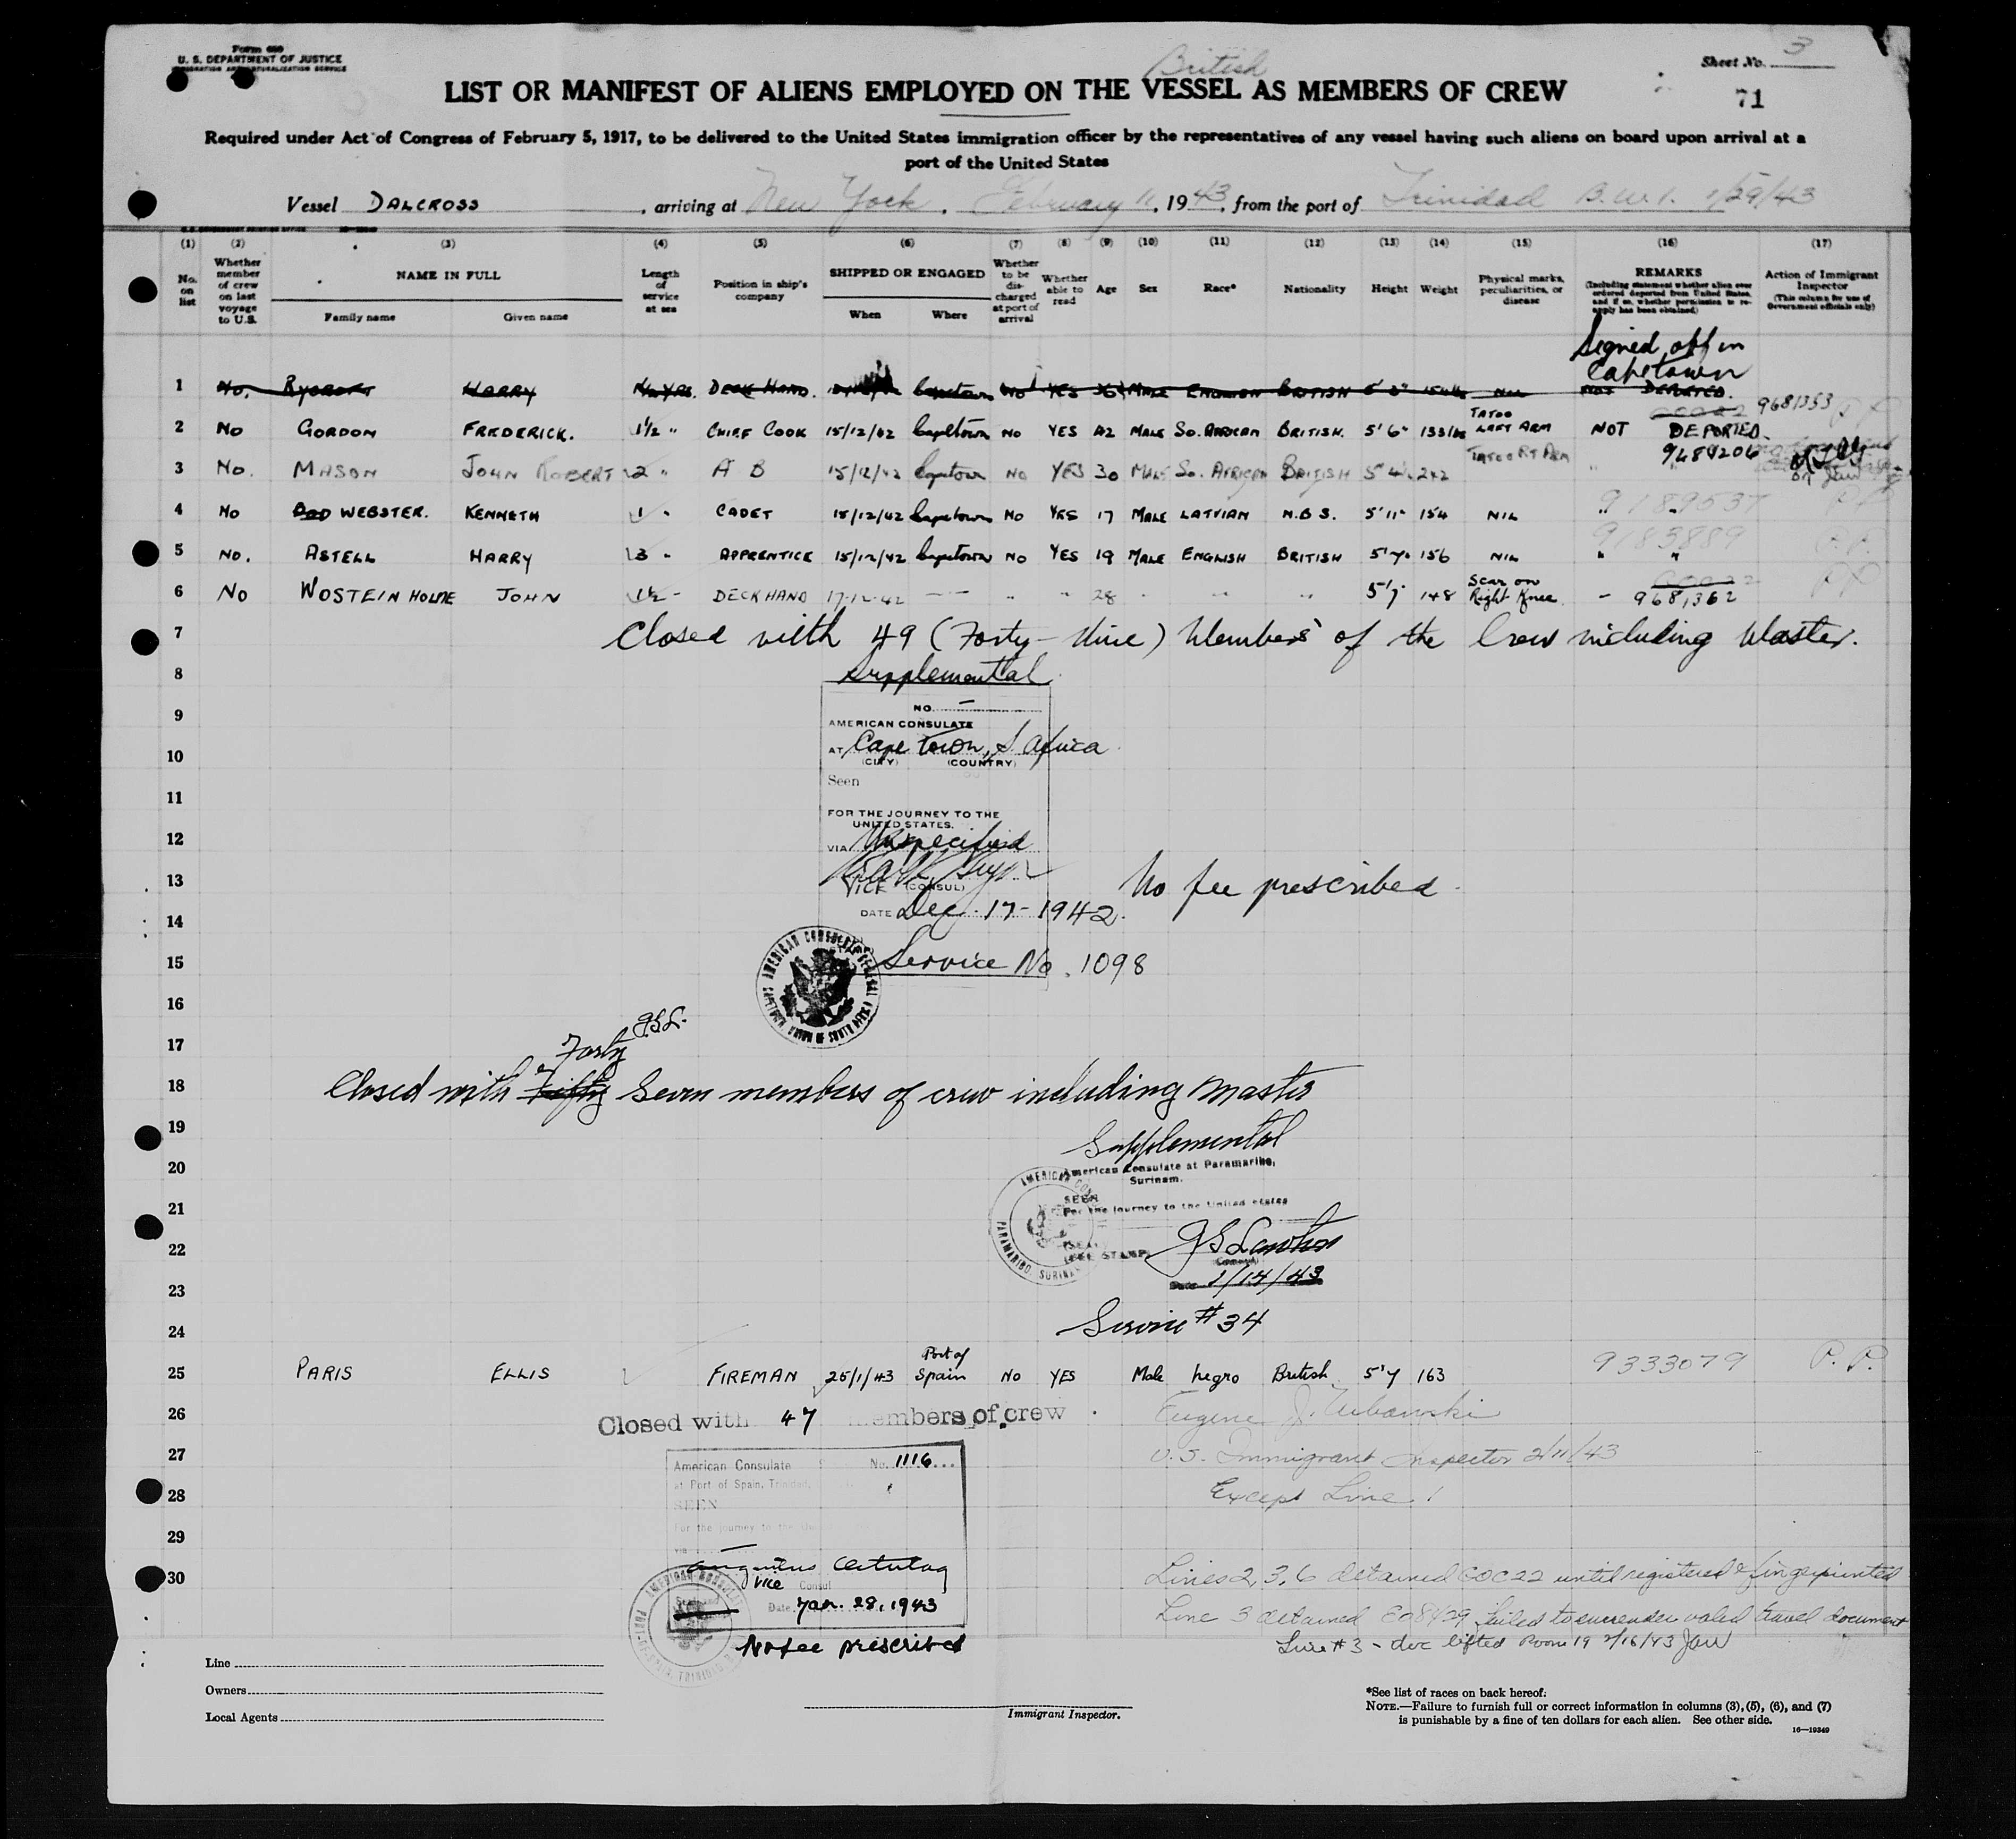 Form 680
U. S. DEPARTMENT OF JUSTICE
IMMIGRATION AND NATURALIZATION SERVICE
Sheet No. 3
British
LIST OR MANIFEST OF ALIENS EMPLOYED ON THE VESSEL AS MEMBERS OF CREW
71
Required under Act of Congress of February 5, 1917, to be delivered to the United States immigration officer by the representatives of any vessel having such aliens on board upon arrival at a
port of the United States
Vessel DALCROSS, arriving at New York, February 11, 1943, from the port of Trinidad B.W.I. 1/29/43
(1) (2) (3) (4) (5) (6) (7) (8) (9) (10) (11) (12) (13) (14) (15) (16) (17)
No. on list
Whether member of crew on last voyage to U.S.
NAME IN FULL
Family name Given name
Length of service at sea
Position in ship's company
SHIPPED OR ENGAGED
When Where
Whether to be discharged at port of arrival
Whether able to read
Age
Sex
Race*
Nationality
Height
Weight
Physical marks, peculiarities, or disease
REMARKS
(Including statement whether alien ever ordered deported from United States, and if so, whether permission to reapply has been obtained)
Action of Immigrant Inspector
(This column for use of Government officials only)
Signed off in
Capetown
1 No. HARRY DECK HAND. Capetown NO YES MALE ENGLISH BRITISH NIL NOT DEPORTED.
9681353
2 NO GORDON FREDERICK. 1½ " CHIEF COOK 15/12/42 Capetown NO YES 42 MALE SO. AFRICAN BRITISH. 5'6" TATOO LEFT ARM NOT DEPORTED.
3 No. MASON JOHN ROBERT 2 " A B 15/12/42 Capetown NO YES 30 MALE SO. AFRICAN BRITISH TATOO RT ARM 9684206
4 NO WEBSTER. KENNETH 1 " CADET 15/12/42 Capetown NO YES 17 MALE LATVIAN N.B.S. 5'11" 154 NIL " " 9189537 P.P.
5 NO. ASTELL HARRY 3 " APPRENTICE 15/12/42 Capetown NO YES 19 MALE ENGLISH BRITISH 5'7" 156 NIL " " 9183889 P.P.
6 NO WOSTEIN HOLME JOHN 1½ - DECKHAND 17-12-42 — " " 28 " " " 5'7" 148 Scar on Right Knee - 9681362 P.P.
7 Closed with 49 (Forty-Nine) Members of the Crew including Master.
8 Supplemental
9 NO. —
AMERICAN CONSULATE
10 AT Cape Town, S. Africa
(CITY) (COUNTRY)
Seen
11
FOR THE JOURNEY TO THE
UNITED STATES.
12 VIA Unspecified
13
VICE (CONSUL)
No fee prescribed
14 DATE Dec. 17-1942.
15 Service No. 1098
16
17 Forty J.S.L.
18 Closed with Fifty Seven members of crew including Master
19 Supplemental
20 American Consulate at Paramaribo,
Surinam.
SEEN
21 For the journey to the United States
22 J S Lawton
Consul
23 Date 1/14/43
24 Service #34
25 PARIS ELLIS FIREMAN 25/1/43 Port of Spain NO YES Male negro British 5'7 163 9333079 P.P.
26 Closed with 47 members of crew
Eugene J.
27 U.S. Immigrant Inspector 2/11/43
American Consulate No. 1116
at Port of Spain, Trinidad,
28 Except Line 1
SEEN
29 For the journey to the
30
Vice Consul
Date Jan. 28, 1943
No fee prescribed
Lines 2, 3, 6 detained GOC22 until registered & fingerprinted
Line 3 detained E08429 failed to surrender valid travel document
Line #3 - doc lifted Room 19 2/16/43 JAW
Line
Owners
Local Agents
Immigrant Inspector.
*See list of races on back hereof.
NOTE.—Failure to furnish full or correct information in columns (3), (5), (6), and (7)
is punishable by a fine of ten dollars for each alien. See other side.
16—19340